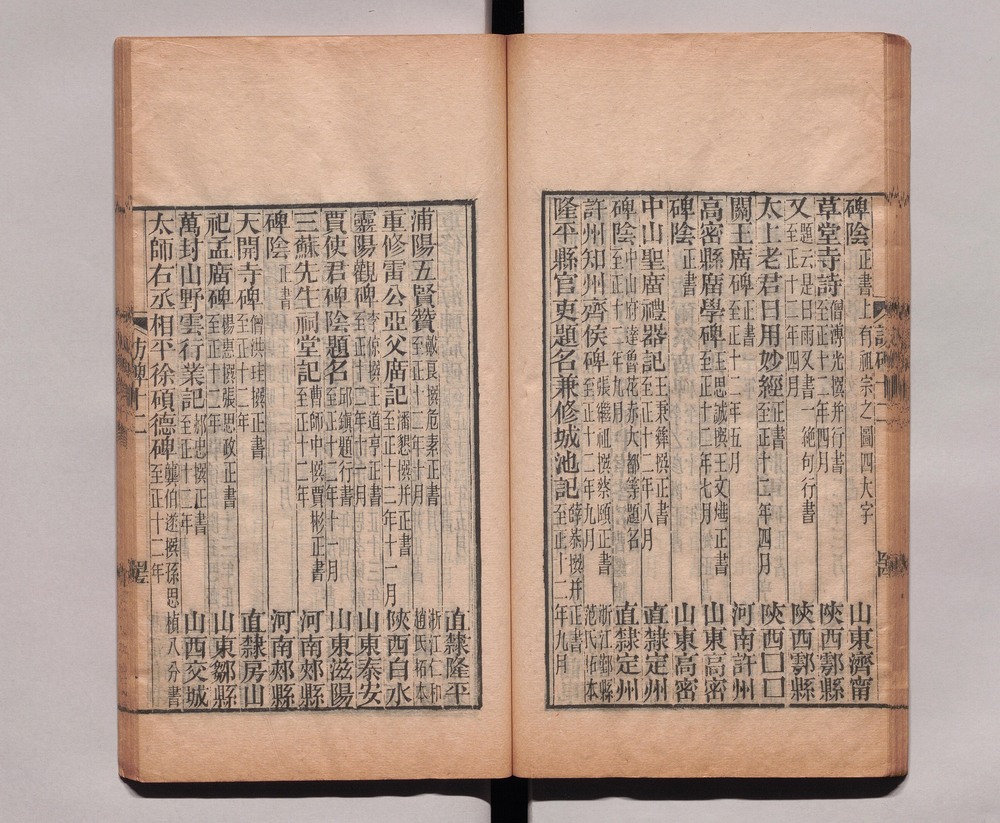 碑陰 正書上有祖宗之圖四大字 山東濟甯
草堂寺詩 僧溥光撰并行書 至正十二年四月 陝西鄠縣
又 題云是日雨又書一絶句行書 至正十二年四月 陝西鄠縣
太上老君日用妙經 正書 至正十二年四月 陝西囗囗
關王廟碑 正書 至正十二年五月 河南許州
高密縣廟學碑 王思誠撰王文 正書 至正十二年七月 山東高密
碑陰 正書 山東高密
中山聖廟禮器記 王秉彝撰正書 至正十二年八月 直隸定州
碑陰 中山府達魯花赤大都等題名 至正十二年九月 直隸定州
許州知州齊侯碑 張繼祖撰蔡頤正書 至正十二年九月 浙江鄞縣 范氏拓本
隆平縣官吏題名兼修城池記 薛泰撰并正書 至正十二年九月
直隸隆平
浦陽五賢贊 戴良撰危素正書 至正十二年十月 浙江仁和 趙氏拓本
重修雷公亞父廟記 潘懋撰并正書 至正十二年十一月 陝西白水
靈陽觀碑 李惊撰王道亨正書 至正十二年十一月 山東泰安
賈使君碑陰題名 邱鎮題行書 至正十二年十一月 山東滋陽
三蘇先生祠堂記 曹師中撰賈彬正書 至正十二年 河南郟縣
碑陰 正書 河南郟縣
天開寺碑 僧洪珪撰正書 至正十二年 直隸房山
祀孟廟碑 楊惠撰張思政正書 至正十二年 山東鄒縣
萬封山野雲行業記 祁忠撰正書 至正十二年 山西交城
太師右丞相平徐碩德碑 龔伯遂撰孫思楨八分書 至正十二年
訪碑十二